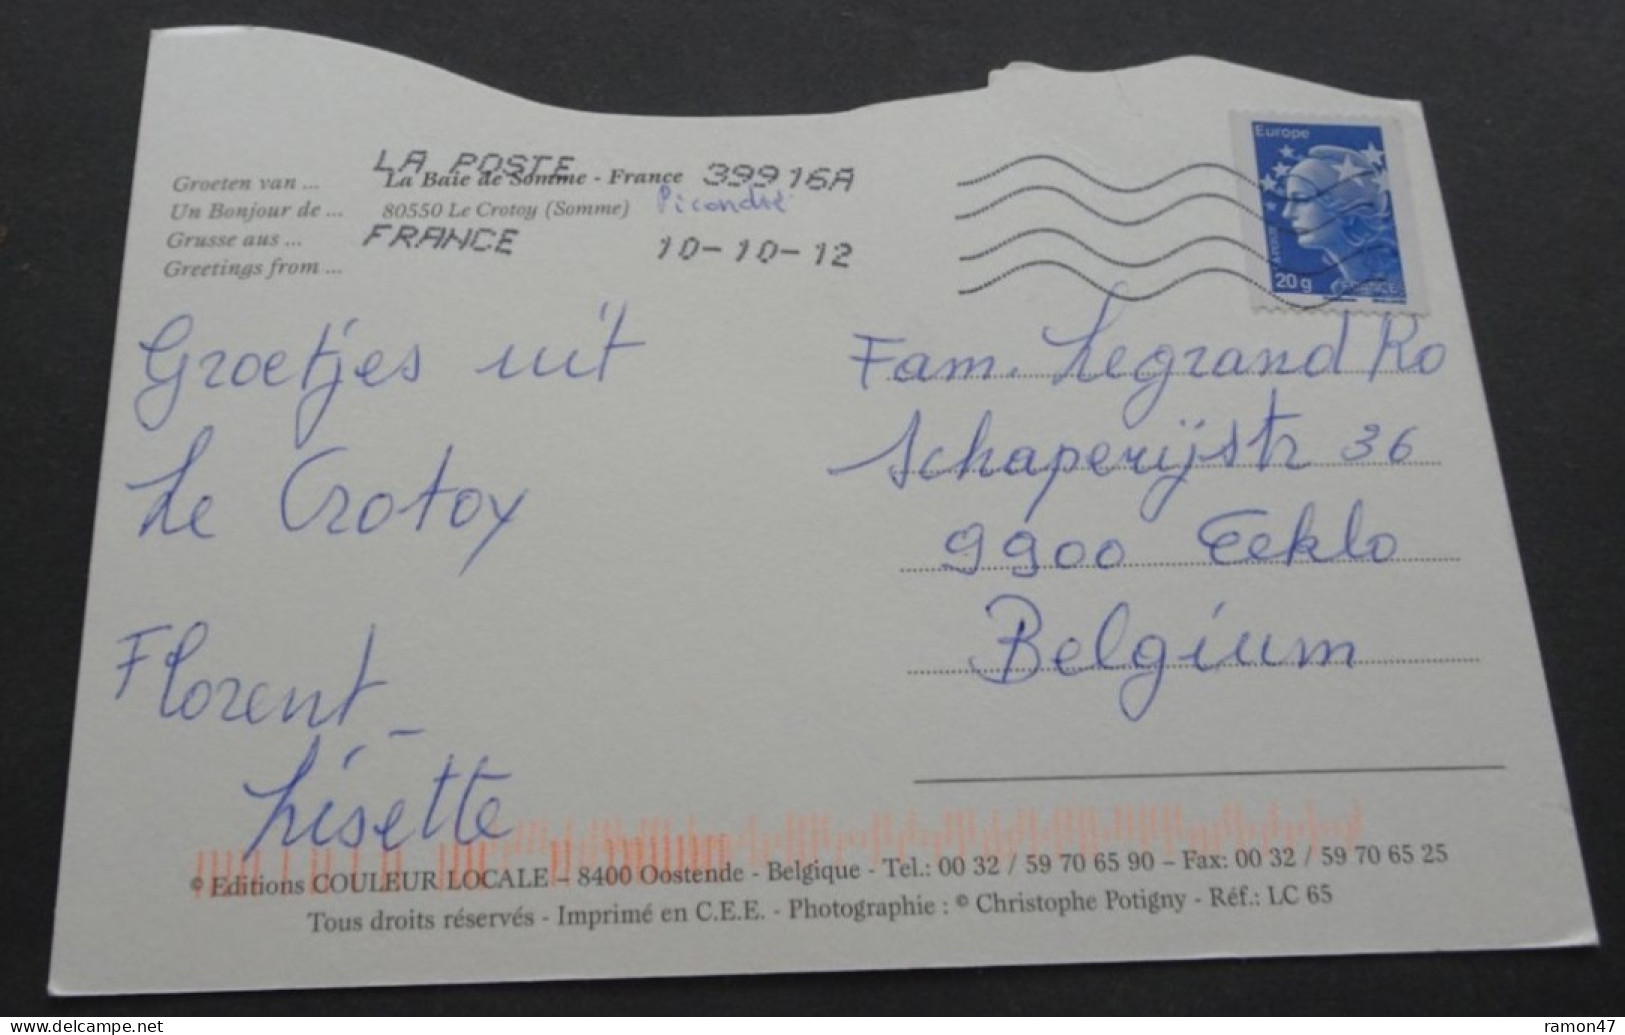 LA POSTE
39916A
Groeten van ... La Baie de Somme - France
Un Bonjour de ... 80550 Le Crotoy (Somme)
Grusse aus ...
FRANCE
10-10-12
Greetings from ...
Europe
20g
FRANCE
Groetjes uit
Le Crotoy
Florent -
Lisette
Fam. Legrand Ro
Schaperijstr 36
9900 Eeklo
Belgium
© Editions COULEUR LOCALE – 8400 Oostende - Belgique - Tel.: 00 32 / 59 70 65 90 – Fax: 00 32 / 59 70 65 25
Tous droits réservés - Imprimé en C.E.E. - Photographie : © Christophe Potigny - Réf.: LC 65
delcampe.net
ramon47